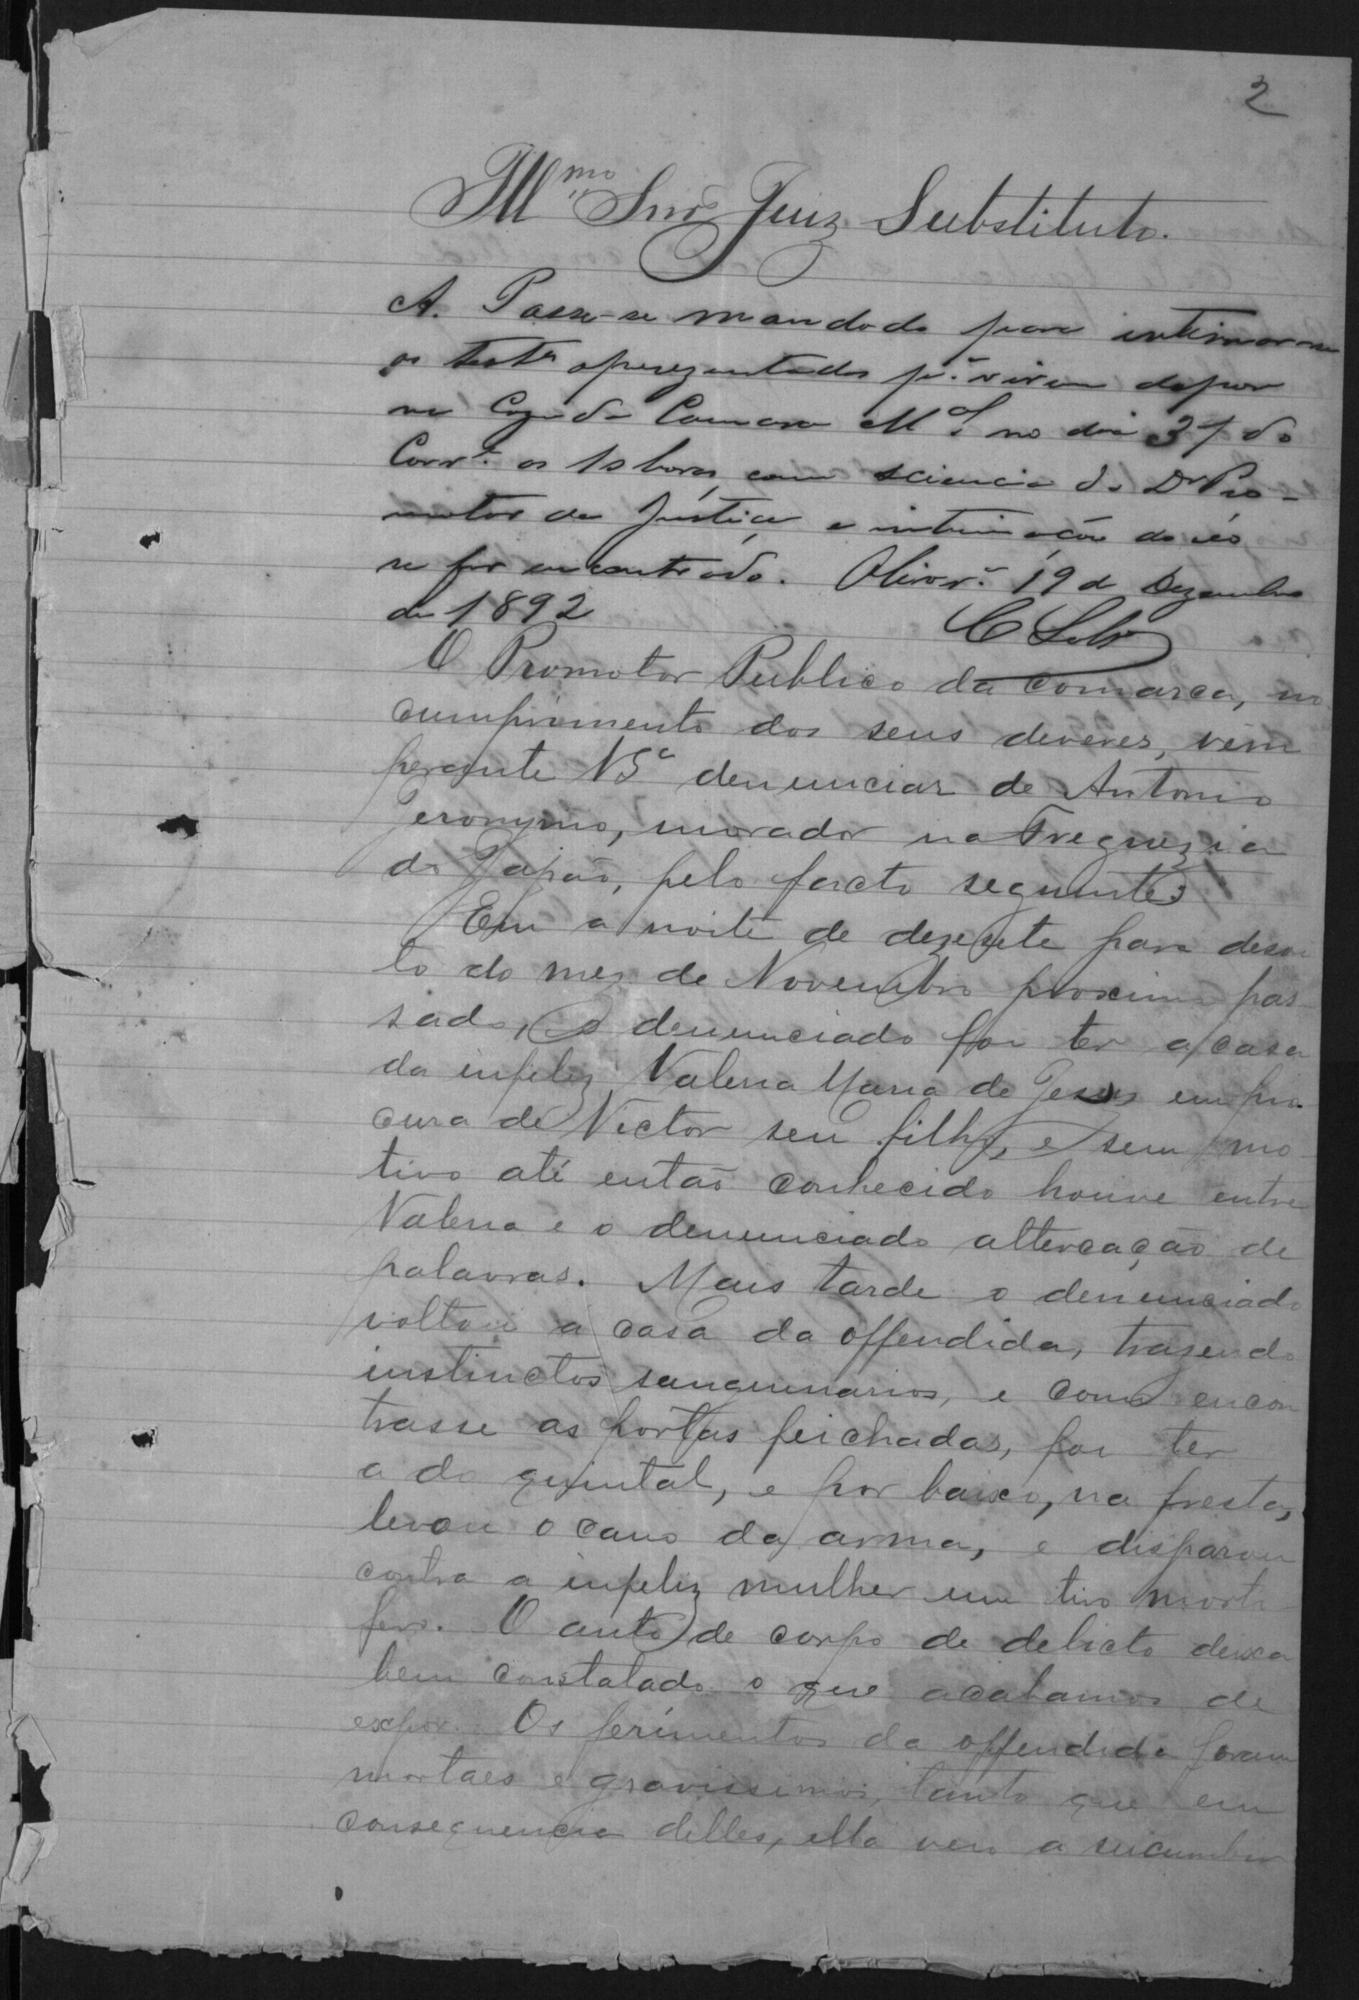 2
Illmo Snr Juiz Substituto.
A. Passe-se mandado para intimar-se
as testas aprezentadas pa virem depor
na Caza da Camara Ml no dia 31 do
Corre as 10 horas, com sciencia do Dr Pro-
motor da Justiça e intimação do réo
se for encontrado. Olivra 19 de Dezembro
de 1892
C Lobo
O Promotor Publico da comarca, no
cumprimento dos seus deveres, vem
perante VSa denunciar de Antonio
Jeronymo, morador na Freguezia
do Japão, pelo facto seguinte:
Em a noite de dezesete para desoi
to do mez de Novembro proximo pas
sado, o denunciado foi ter a casa
da infeliz Valeria Maria de Jesus em pro
cura de Victor seu filho, e sem mo
tivo até então conhecido houve entre
Valeria e o denunciado altercação de
palavras. Mais tarde o denunciado
voltou a casa da offendida, trasendo
instinctos sanguinarios, e como encon
trasse as portas feichadas, foi ter
a do quintal, e por baixo, na fresta,
levou o cano da arma, e disparou
contra a infeliz mulher um tiro morti
fero. O auto de corpo de delicto deixa
bem constatado o que acabamos de
expor. Os ferimentos da offendida foram
mortaes e gravissimos, tanto que em
consequencia delles, ella veio a sucumbir